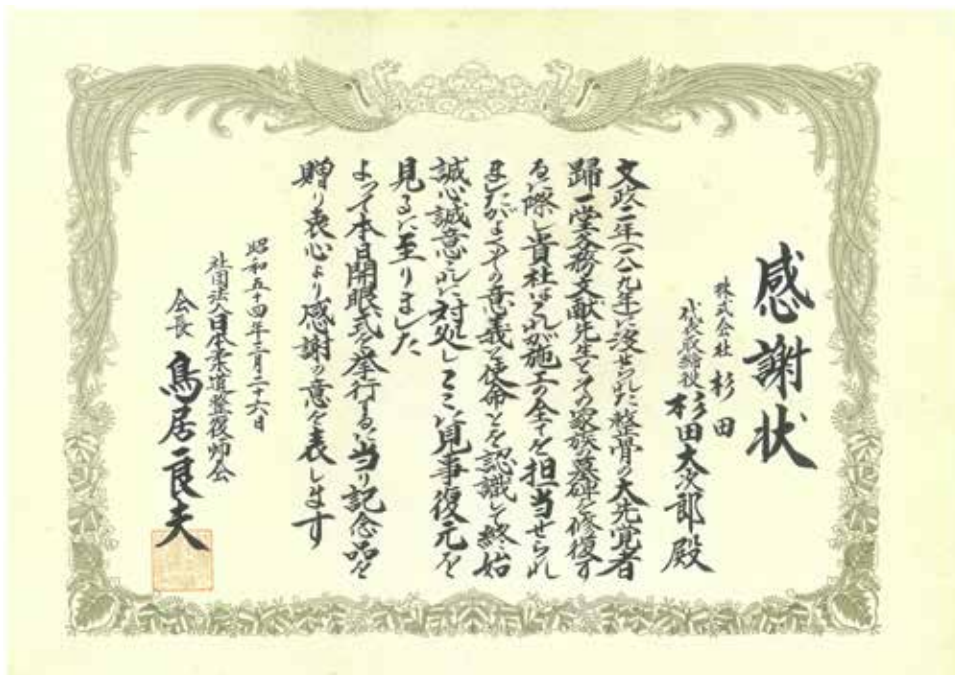 感謝状
株式会社 杉田
代表取締役 杉田大次郎殿
文政二年(一八一九年)に没せられた整骨の大先覚者
歸一堂各務文献先生とその家族の墓碑を修復す
るに際し貴社はこれが施工の全てを担当せられ
ましたがよくその意義と使命とを認識して終始
誠心誠意これに対処しここに見事復元を
見るに至りました
よって本日開眼式を挙行するに当り記念品を
贈り衷心より感謝の意を表します
昭和五十四年三月二十六日
社団法人日本柔道整復師会
会長 鳥居良夫